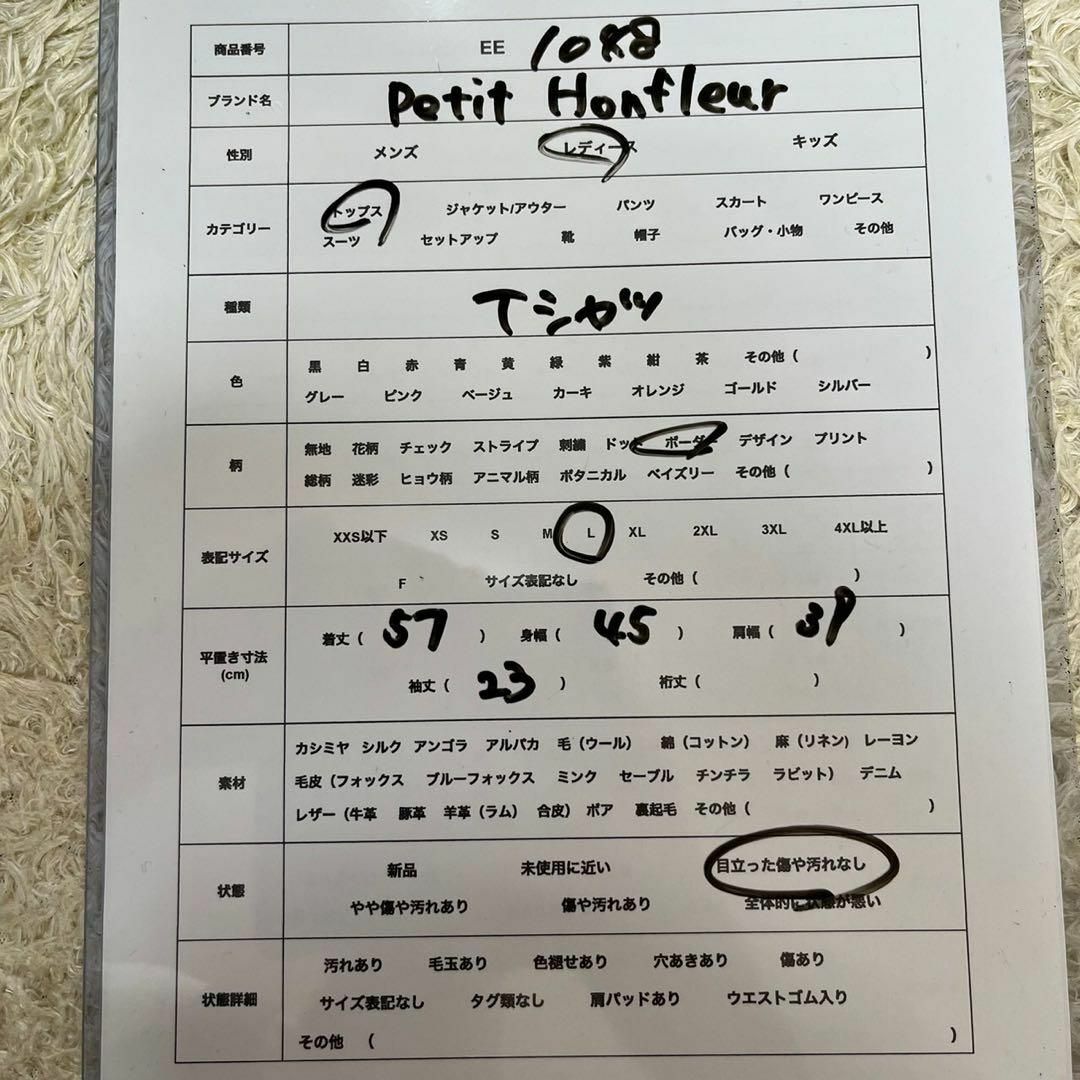 商品番号 EE 10
ブランド名 Petit Honfleur
性別 メンズ レディース キッズ
カテゴリー トップス ジャケット/アウター パンツ スカート ワンピース
スーツ セットアップ 靴 帽子 バッグ・小物 その他
種類 Tシャツ
色 黒 白 赤 青 黄 緑 紫 紺 茶 その他 ( )
グレー ピンク ベージュ カーキ オレンジ ゴールド シルバー
柄 無地 花柄 チェック ストライプ 刺繍 ドット ボーダー デザイン プリント
総柄 迷彩 ヒョウ柄 アニマル柄 ボタニカル ペイズリー その他 ( )
表記サイズ XXS以下 XS S M L XL 2XL 3XL 4XL以上
F サイズ表記なし その他 ( )
平置き寸法 (cm) 着丈 ( 57 ) 身幅 ( 45 ) 肩幅 ( 39 )
袖丈 ( 23 ) 裄丈 ( )
素材 カシミヤ シルク アンゴラ アルパカ 毛 (ウール) 綿 (コットン) 麻 (リネン) レーヨン
毛皮 (フォックス ブルーフォックス ミンク セーブル チンチラ ラビット) デニム
レザー (牛革 豚革 羊革 (ラム) 合皮) ボア 裏起毛 その他 ( )
状態 新品 未使用に近い 目立った傷や汚れなし
やや傷や汚れあり 傷や汚れあり 全体的に状態が悪い
状態詳細 汚れあり 毛玉あり 色褪せあり 穴あきあり 傷あり
サイズ表記なし タグ類なし 肩パッドあり ウエストゴム入り
その他 ( )